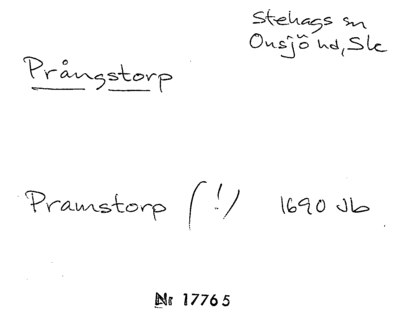 Stehags sn
Onsjö hd, Sk
Prångstorp
Pramstorp (!) 1690 Jb
Nr 17765